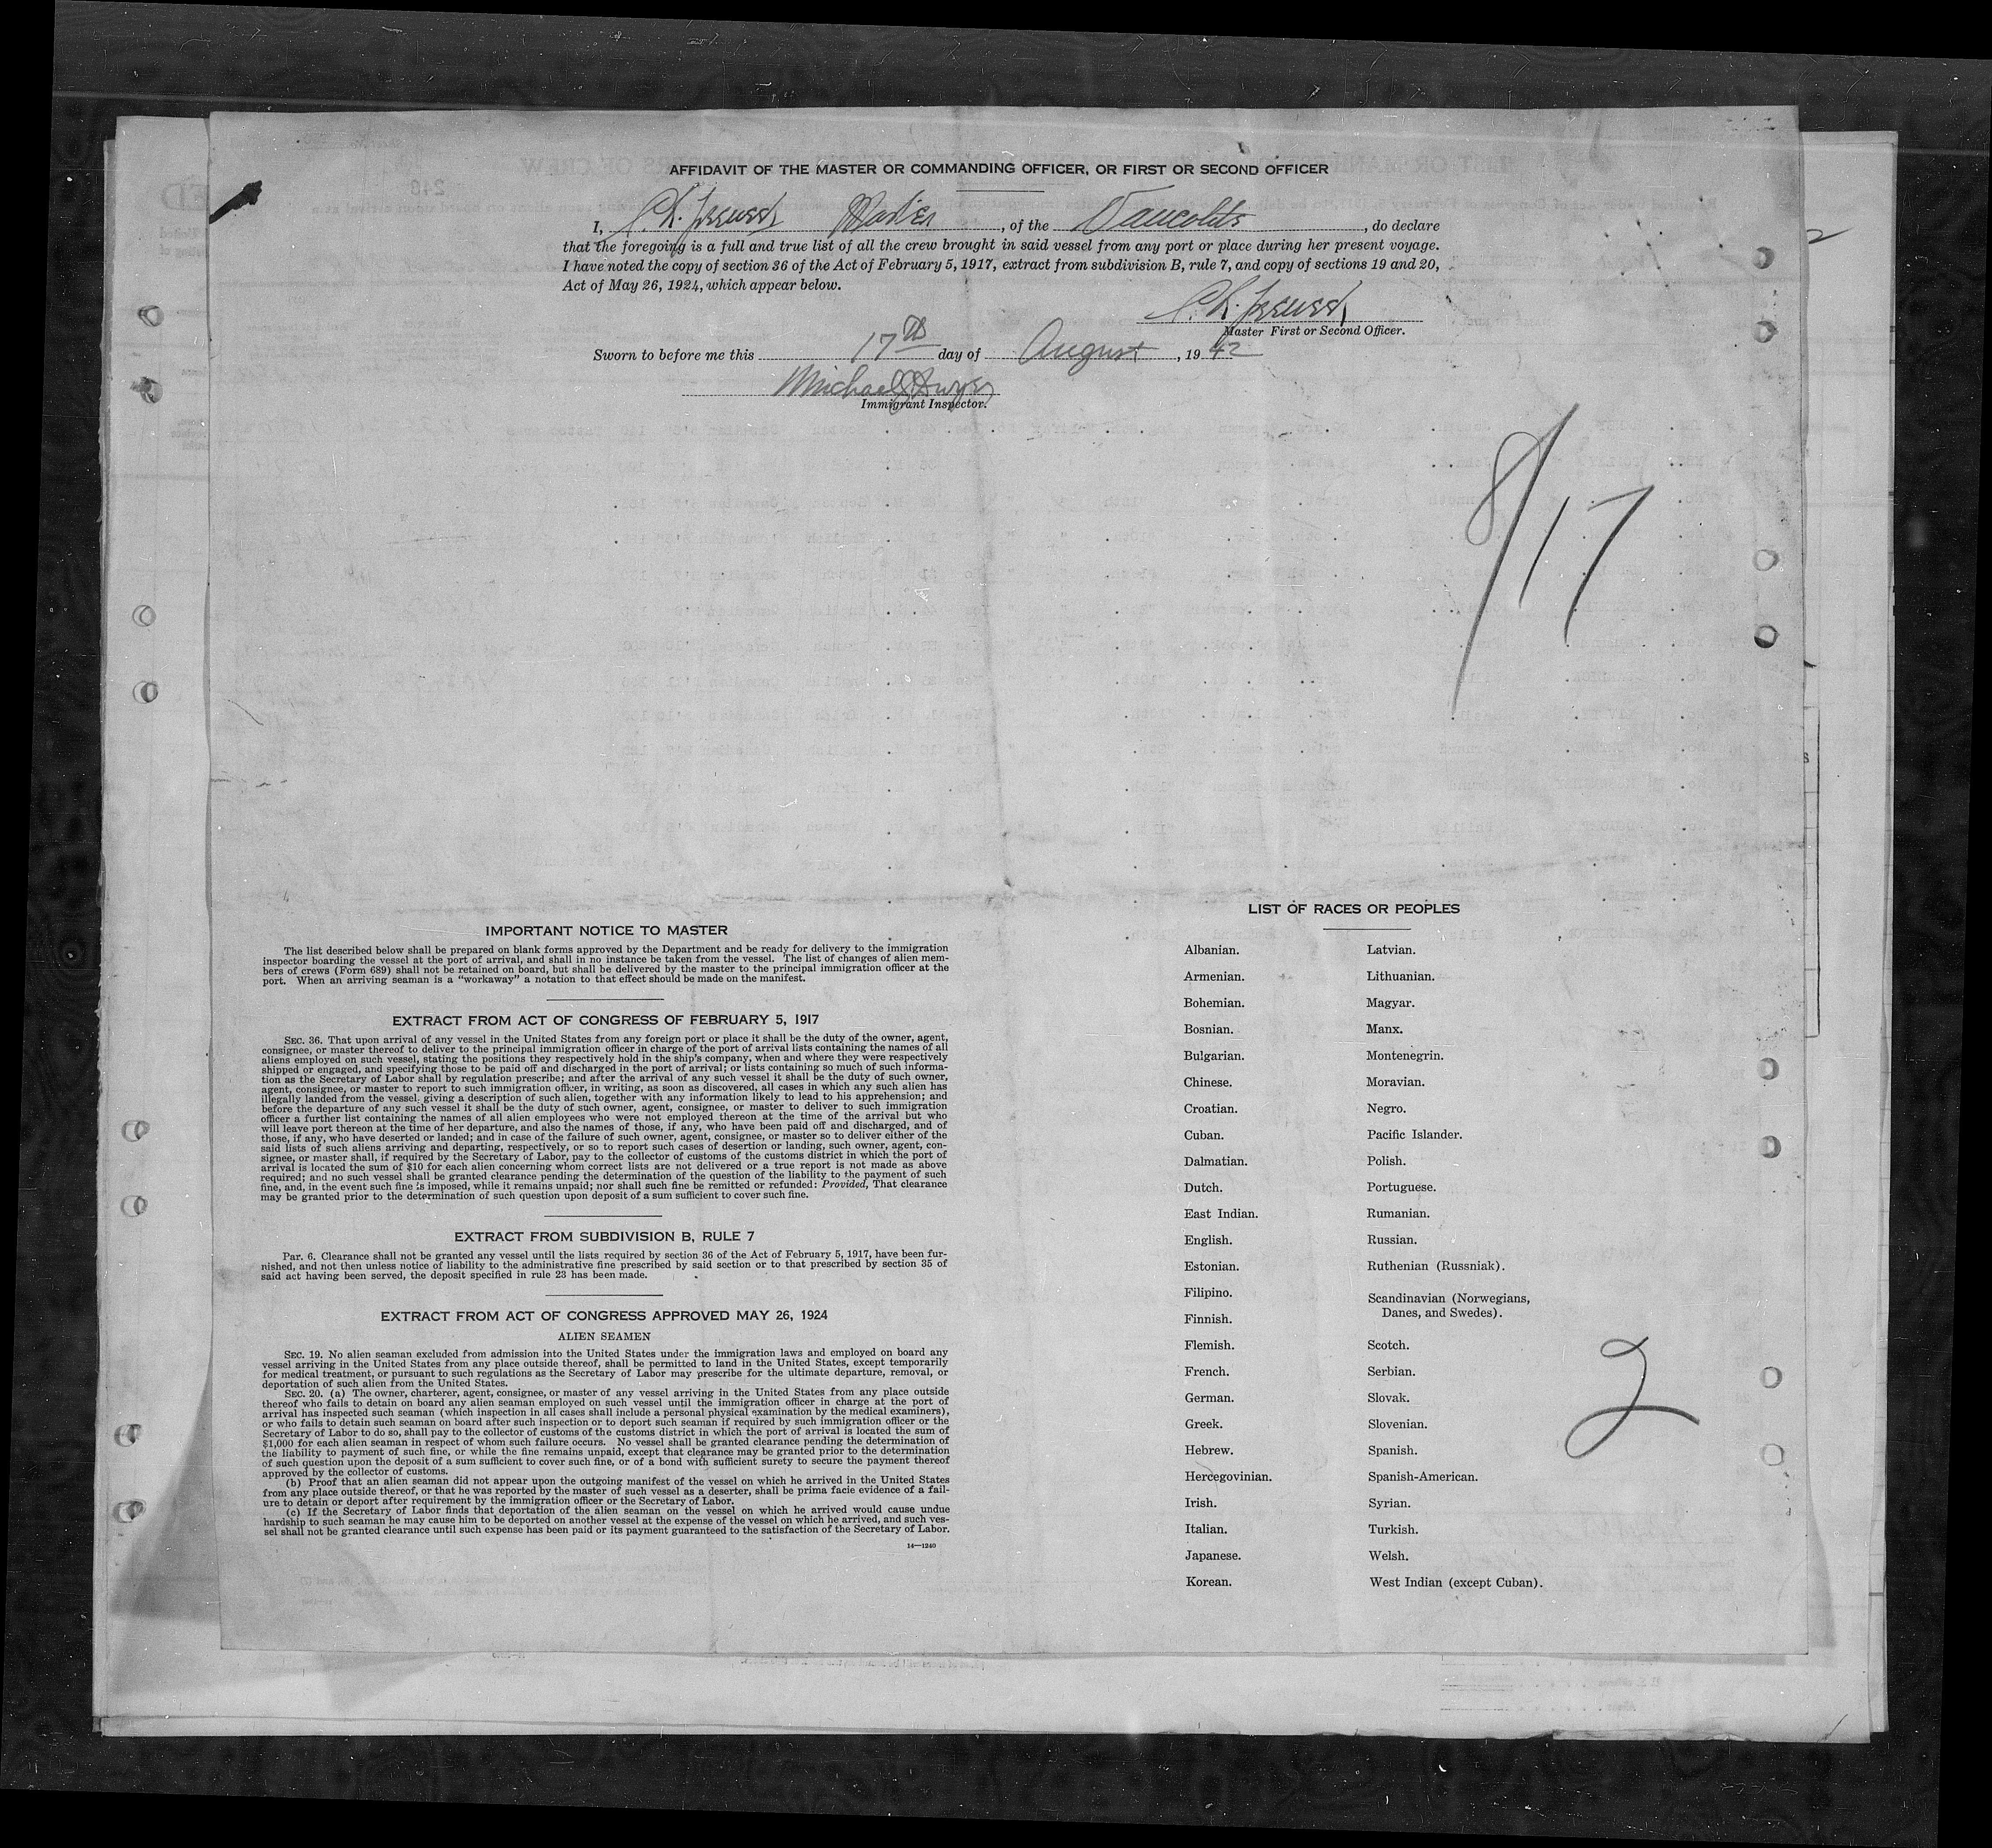 AFFIDAVIT OF THE MASTER OR COMMANDING OFFICER, OR FIRST OR SECOND OFFICER
I, Master, of the Vancolite, do declare
that the foregoing is a full and true list of all the crew brought in said vessel from any port or place during her present voyage.
I have noted the copy of section 36 of the Act of February 5, 1917, extract from subdivision B, rule 7, and copy of sections 19 and 20,
Act of May 26, 1924, which appear below.
Master First or Second Officer.
Sworn to before me this 17th day of August, 1942
Michael
Immigrant Inspector.
8/17
IMPORTANT NOTICE TO MASTER
The list described below shall be prepared on blank forms approved by the Department and be ready for delivery to the immigration
inspector boarding the vessel at the port of arrival, and shall in no instance be taken from the vessel. The list of changes of alien mem-
bers of crews (Form 689) shall not be retained on board, but shall be delivered by the master to the principal immigration officer at the
port. When an arriving seaman is a "workaway" a notation to that effect should be made on the manifest.
EXTRACT FROM ACT OF CONGRESS OF FEBRUARY 5, 1917
SEC. 36. That upon arrival of any vessel in the United States from any foreign port or place it shall be the duty of the owner, agent,
consignee, or master thereof to deliver to the principal immigration officer in charge of the port of arrival lists containing the names of all
aliens employed on such vessel, stating the positions they respectively hold in the ship's company, when and where they were respectively
shipped or engaged, and specifying those to be paid off and discharged in the port of arrival; or lists containing so much of such informa-
tion as the Secretary of Labor shall by regulation prescribe; and after the arrival of any such vessel it shall be the duty of such owner,
agent, consignee, or master to report to such immigration officer, in writing, as soon as discovered, all cases in which any such alien has
illegally landed from the vessel, giving a description of such alien, together with any information likely to lead to his apprehension; and
before the departure of any such vessel it shall be the duty of such owner, agent, consignee, or master to deliver to such immigration
officer a further list containing the names of all alien employees who were not employed thereon at the time of the arrival but who
will leave port thereon at the time of her departure, and also the names of those, if any, who have been paid off and discharged, and of
those, if any, who have deserted or landed; and in case of the failure of such owner, agent, consignee, or master so to deliver either of the
said lists of such aliens arriving and departing, respectively, or so to report such cases of desertion or landing, such owner, agent, con-
signee, or master shall, if required by the Secretary of Labor, pay to the collector of customs of the customs district in which the port of
arrival is located the sum of $10 for each alien concerning whom correct lists are not delivered or a true report is not made as above
required; and no such vessel shall be granted clearance pending the determination of the question of the liability to the payment of such
fine, and, in the event such fine is imposed, while it remains unpaid; nor shall such fine be remitted or refunded: Provided, That clearance
may be granted prior to the determination of such question upon deposit of a sum sufficient to cover such fine.
EXTRACT FROM SUBDIVISION B, RULE 7
Par. 6. Clearance shall not be granted any vessel until the lists required by section 36 of the Act of February 5, 1917, have been fur-
nished, and not then unless notice of liability to the administrative fine prescribed by said section or to that prescribed by section 35 of
said act having been served, the deposit specified in rule 23 has been made.
EXTRACT FROM ACT OF CONGRESS APPROVED MAY 26, 1924
ALIEN SEAMEN
SEC. 19. No alien seaman excluded from admission into the United States under the immigration laws and employed on board any
vessel arriving in the United States from any place outside thereof, shall be permitted to land in the United States, except temporarily
for medical treatment, or pursuant to such regulations as the Secretary of Labor may prescribe for the ultimate departure, removal, or
deportation of such alien from the United States.
SEC. 20. (a) The owner, charterer, agent, consignee, or master of any vessel arriving in the United States from any place outside
thereof who fails to detain on board any alien seaman employed on such vessel until the immigration officer in charge at the port of
arrival has inspected such seaman (which inspection in all cases shall include a personal physical examination by the medical examiners),
or who fails to detain such seaman on board after such inspection or to deport such seaman if required by such immigration officer or the
Secretary of Labor to do so, shall pay to the collector of customs of the customs district in which the port of arrival is located the sum of
$1,000 for each alien seaman in respect of whom such failure occurs. No vessel shall be granted clearance pending the determination of
the liability to payment of such fine, or while the fine remains unpaid, except that clearance may be granted prior to the determination
of such question upon the deposit of a sum sufficient to cover such fine, or of a bond with sufficient surety to secure the payment thereof
approved by the collector of customs.
(b) Proof that an alien seaman did not appear upon the outgoing manifest of the vessel on which he arrived in the United States
from any place outside thereof, or that he was reported by the master of such vessel as a deserter, shall be prima facie evidence of a fail-
ure to detain or deport after requirement by the immigration officer or the Secretary of Labor.
(c) If the Secretary of Labor finds that deportation of the alien seaman on the vessel on which he arrived would cause undue
hardship to such seaman he may cause him to be deported on another vessel at the expense of the vessel on which he arrived, and such ves-
sel shall not be granted clearance until such expense has been paid or its payment guaranteed to the satisfaction of the Secretary of Labor.
14—1240
LIST OF RACES OR PEOPLES
Albanian.
Armenian.
Bohemian.
Bosnian.
Bulgarian.
Chinese.
Croatian.
Cuban.
Dalmatian.
Dutch.
East Indian.
English.
Estonian.
Filipino.
Finnish.
Flemish.
French.
German.
Greek.
Hebrew.
Hercegovinian.
Irish.
Italian.
Japanese.
Korean.
Latvian.
Lithuanian.
Magyar.
Manx.
Montenegrin.
Moravian.
Negro.
Pacific Islander.
Polish.
Portuguese.
Rumanian.
Russian.
Ruthenian (Russniak).
Scandinavian (Norwegians,
Danes, and Swedes).
Scotch.
Serbian.
Slovak.
Slovenian.
Spanish.
Spanish-American.
Syrian.
Turkish.
Welsh.
West Indian (except Cuban).
2